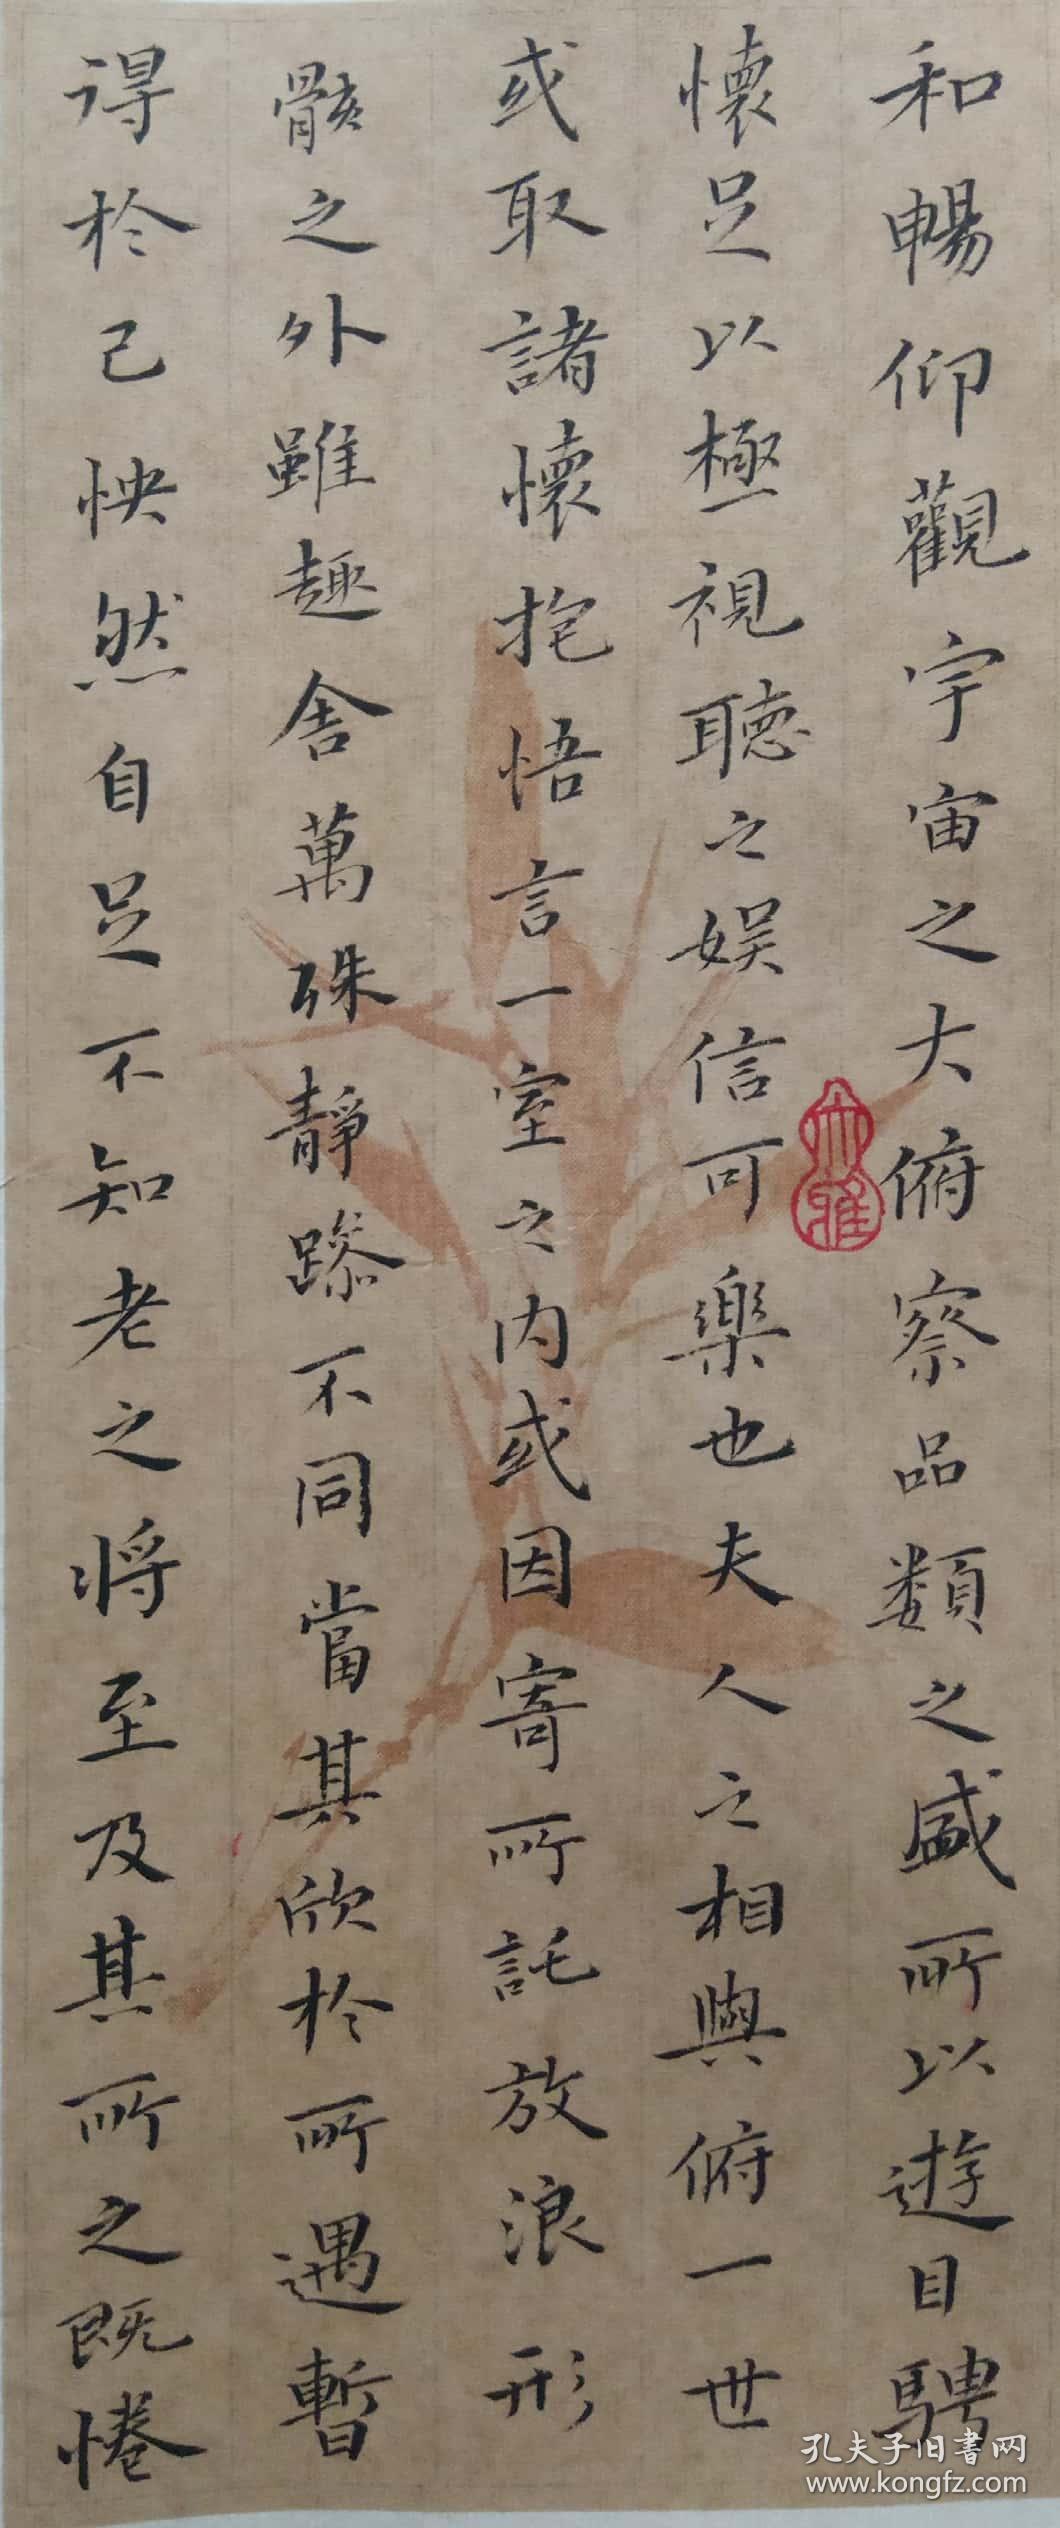 和暢仰觀宇宙之大俯察品類之盛所以遊目騁
懷足以極視聽之娱信可樂也夫人之相與俯一世
或取諸懷抱悟言一室之内或因寄所託放浪形
骸之外雖趣舍萬殊靜躁不同當其欣於所遇暫
得於己怏然自足不知老之将至及其所之既惓
大雅
孔夫子旧書网
www.kongfz.com